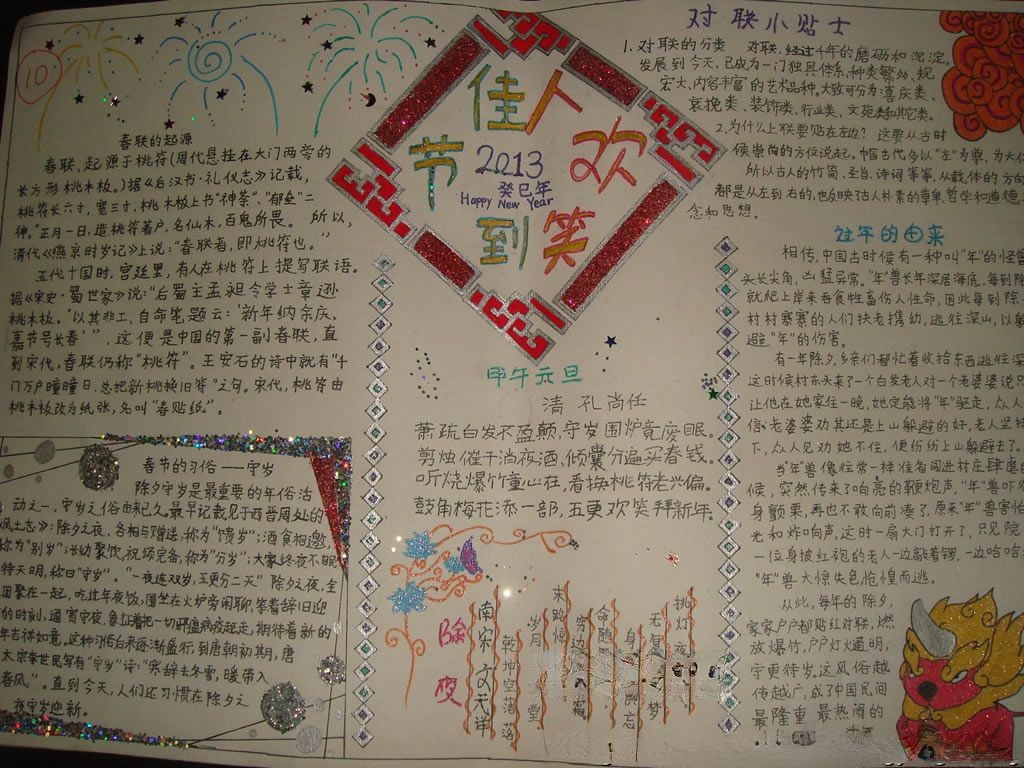 10
佳人
节欢
到笑
2013
癸巳年
Happy New Year
春联的起源
春联,起源于桃符(周代悬挂在大门两旁的
长方形桃木板。)据《后汉书·礼仪志》记载,
桃符长六寸,宽三寸,桃木板上书"神荼"、"郁垒"二
神。"正月一日,造桃符著户,名仙木,百鬼所畏。 所以,
清代《燕京时岁记》上说:"春联者,即桃符也。"
五代十国时,宫廷里,有人在桃符上提写联语。
据《宋史·蜀世家》说:"后蜀主孟昶令学士章逊
桃木板。"以其非工,自命笔题云:"新年纳余庆,
嘉节号长春'",这便是中国的第一副春联,直
到宋代,春联仍称"桃符"。王安石的诗中就有"千
门万户曈曈日,总把新桃换旧符"之句。宋代,桃符由
桃木板改为纸张,名叫"春贴纸"。
春节的习俗——守岁
除夕守岁是最重要的年俗活
动之一,守岁之俗由来已久。最早记载见于西晋周处的
风土志》:除夕之夜,各相与赠送,称为"馈岁";酒食相邀,
称为"别岁";长幼聚饮,祝颂完备,称为"分岁";大家终夜不眠
待天明,称曰"守岁"。"一夜连双岁,五更分二天"除夕之夜,全
团聚在一起,吃过年夜饭,围坐在火炉旁闲聊,等着辞旧迎
的时刻,通宵守夜,象征着把一切邪瘟病疫赶走,期待着新的
年吉祥如意。这种习俗后来逐渐盛行,到唐朝初期,唐
太宗李世民写有"守岁"诗:"寒辞去冬雪,暖带入
春风"。直到今天,人们还习惯在除夕之
夜守岁迎新。
甲午元旦
清 孔尚任
萧疏白发不盈颠,守岁围炉竟废眠。
剪烛催干消夜酒,倾囊分遍买春钱。
听烧爆竹童心在,看换桃符老兴偏。
鼓角梅花添一部,五更欢笑拜新年。
除夜
南宋 文天祥
乾坤空落落
岁月 堂
末路惊
穷边 霜
命随
身 忘
无复 梦
挑灯夜
对联小贴士
1.对联的分类 对联,经过千年的磨砺和沉淀,
发展到今天,已成为一门独具体系,种类繁多、规
宏大、内容丰富的艺术品种,大致可分为:喜庆类、
哀挽类、装饰类、行业类、文苑类和其它类。
2.为什么上联要贴在左边? 这要从古时
候崇尚的方位说起。中国古代多以"左"为尊,为大位
所以古人的竹简、圣旨、诗词等等,从载体的方向
都是从左到右的,也反映了古人朴素的尊卑、哲学和道德
念和思想。
过年的由来
相传,中国古时候有一种叫"年"的怪兽
头长尖角,凶猛异常。"年"兽长年深居海底,每到除
就爬上岸来吞食牲畜伤人性命,因此每到除
村村寨寨的人们扶老携幼,逃往深山,以躲
避"年"的伤害。
有一年除夕,乡亲们都忙着收拾东西逃往深
这时候村东头来了一个白发老人对一个老婆婆说只
让他在她家住一晚,她定能将"年"驱走,众人
信,老婆婆劝其还是上山躲避的好,老人坚持
下,众人见劝她不住,便纷纷上山躲避去了。
当年兽像往常一样准备闯进村庄肆虐
候,突然传来了响亮的鞭炮声,"年"兽吓得
身颤栗,再也不敢向前凑了,原来"年"兽害怕
光和炸响声,这时一扇大门打开了,只见院
一位身披红袍的老人一边敲着锣,一边哈哈
"年"兽大惊失色,怆惶而逃。
从此,每年的除夕,
家家户户都贴红对联,燃
放爆竹,户户灯火通明,
守更待岁。这风俗越
传越广,成了中国民间
最隆重 最热闹的